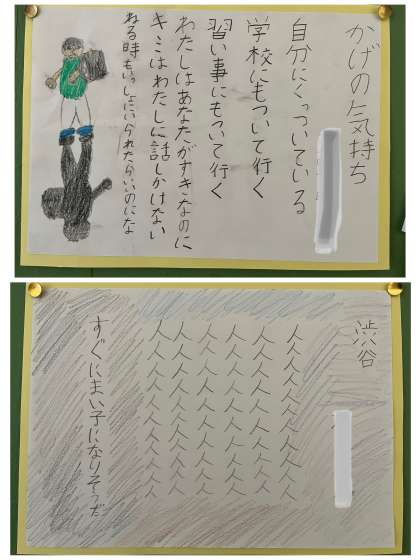 かげの気持ち
自分にくっついている
学校にもついて行く
習い事にもついて行く
わたしはあなたがすきなのに
キミはわたしに話しかけない
ねる時もいっしょにいられたらいいのにな
渋谷
人人人人人人人人人人人
人人人人人人人人人人人
人人人人人人人人人人人
人人人人人人人人人人人
人人人人人人人人人人人
人人人人人人人人人人人
すぐにまい子になりそうだ